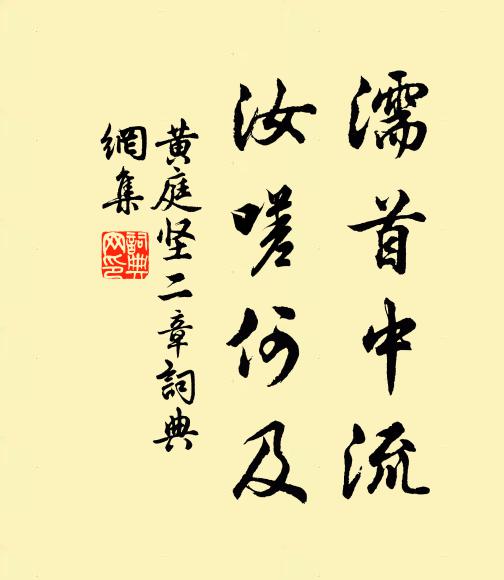 濡首中流
汝嗟何及
黄庭坚二章詞典
網集
詞典
网印